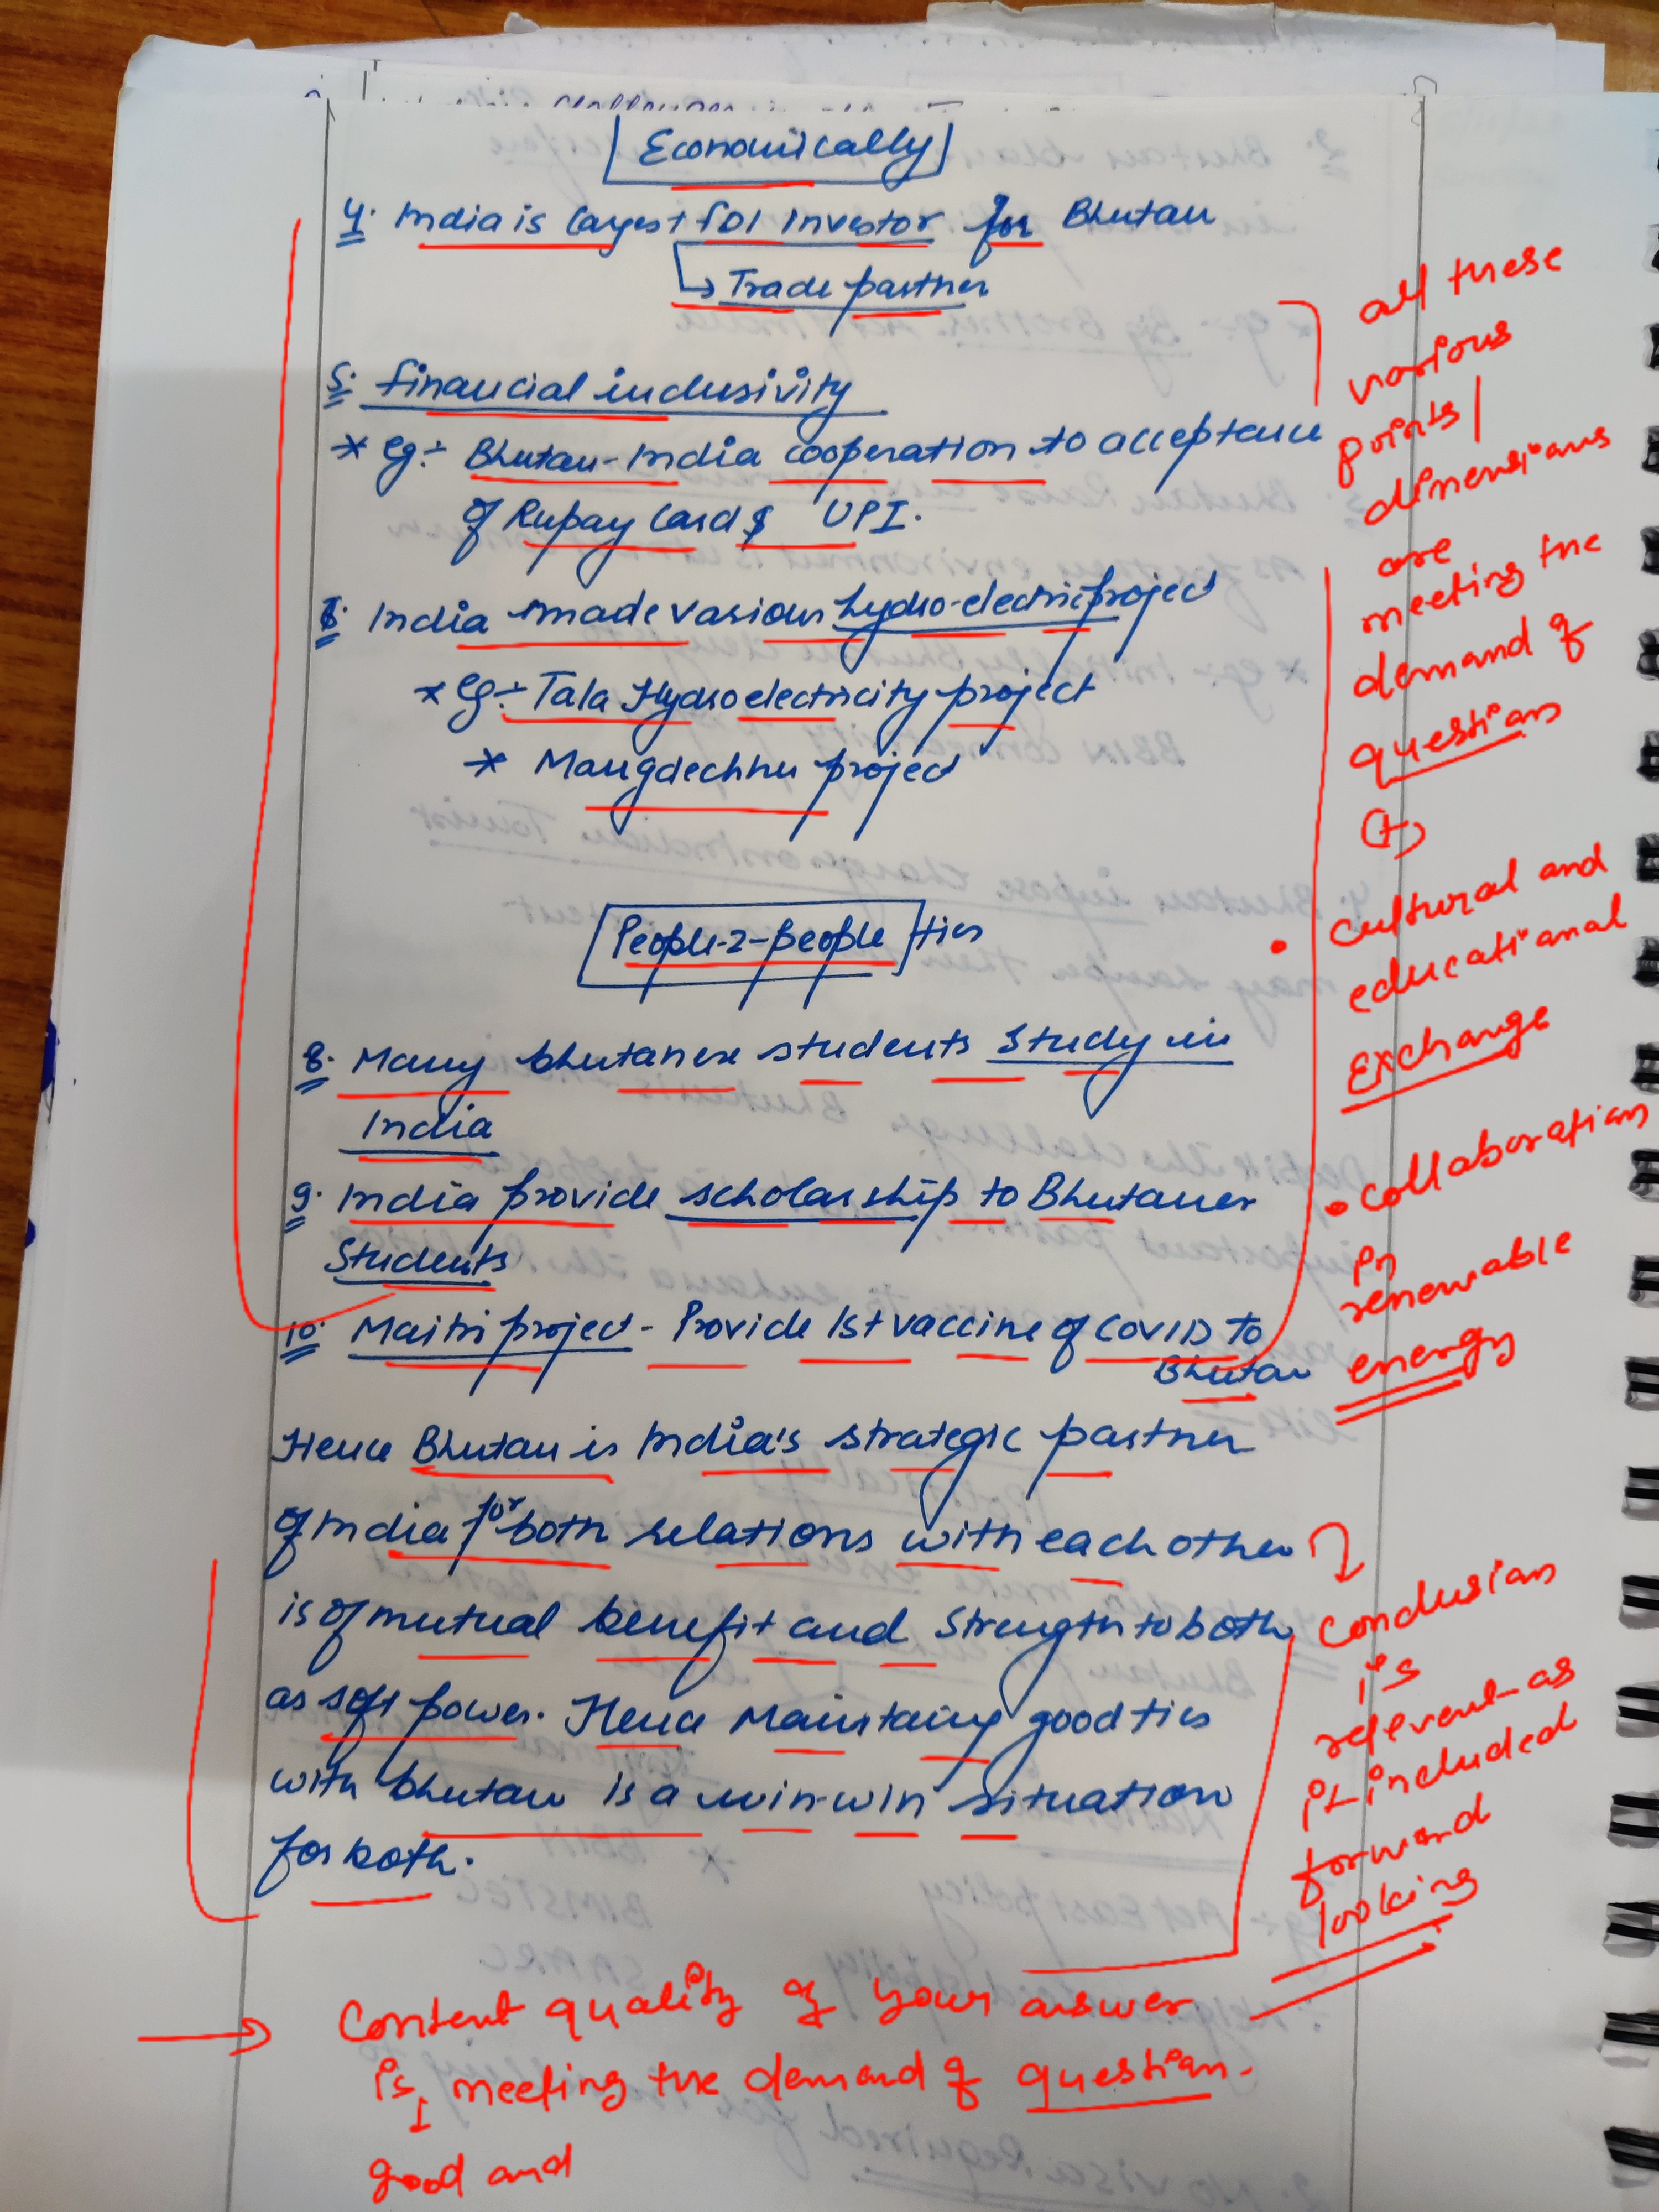 Economically
4. India is largest FDI Investor for Bhutan
↳ Trade partner
5. financial inclusivity
* eg:- Bhutan-India cooperation to acceptance
of Rupay Card & UPI.
India made various hydro-electric project
* eg:- Tala Hydroelectricity project
* Mangdechhu project
People-2-people ties
8. Many bhutanese students study in
India
9. India provide scholarship to Bhutanese
Students
10. Maitri project - Provide 1st vaccine of COVID to
Bhutan
Hence Bhutan is India's strategic partner
of India for both relations with each other
is of mutual benefit and Strength to both
as soft power. Hence Maintaing good ties
with bhutan is a win-win situation
for both.
all these
various
points/
dimensions
are
meeting the
demand of
question
(+)
• cultural and
educational
Exchange
• collaboration
in
renewable
energy
Conclusion
is
relevent as
it included
forward
looking
→ Content quality of your answer
is meeting the demand of question.
good and